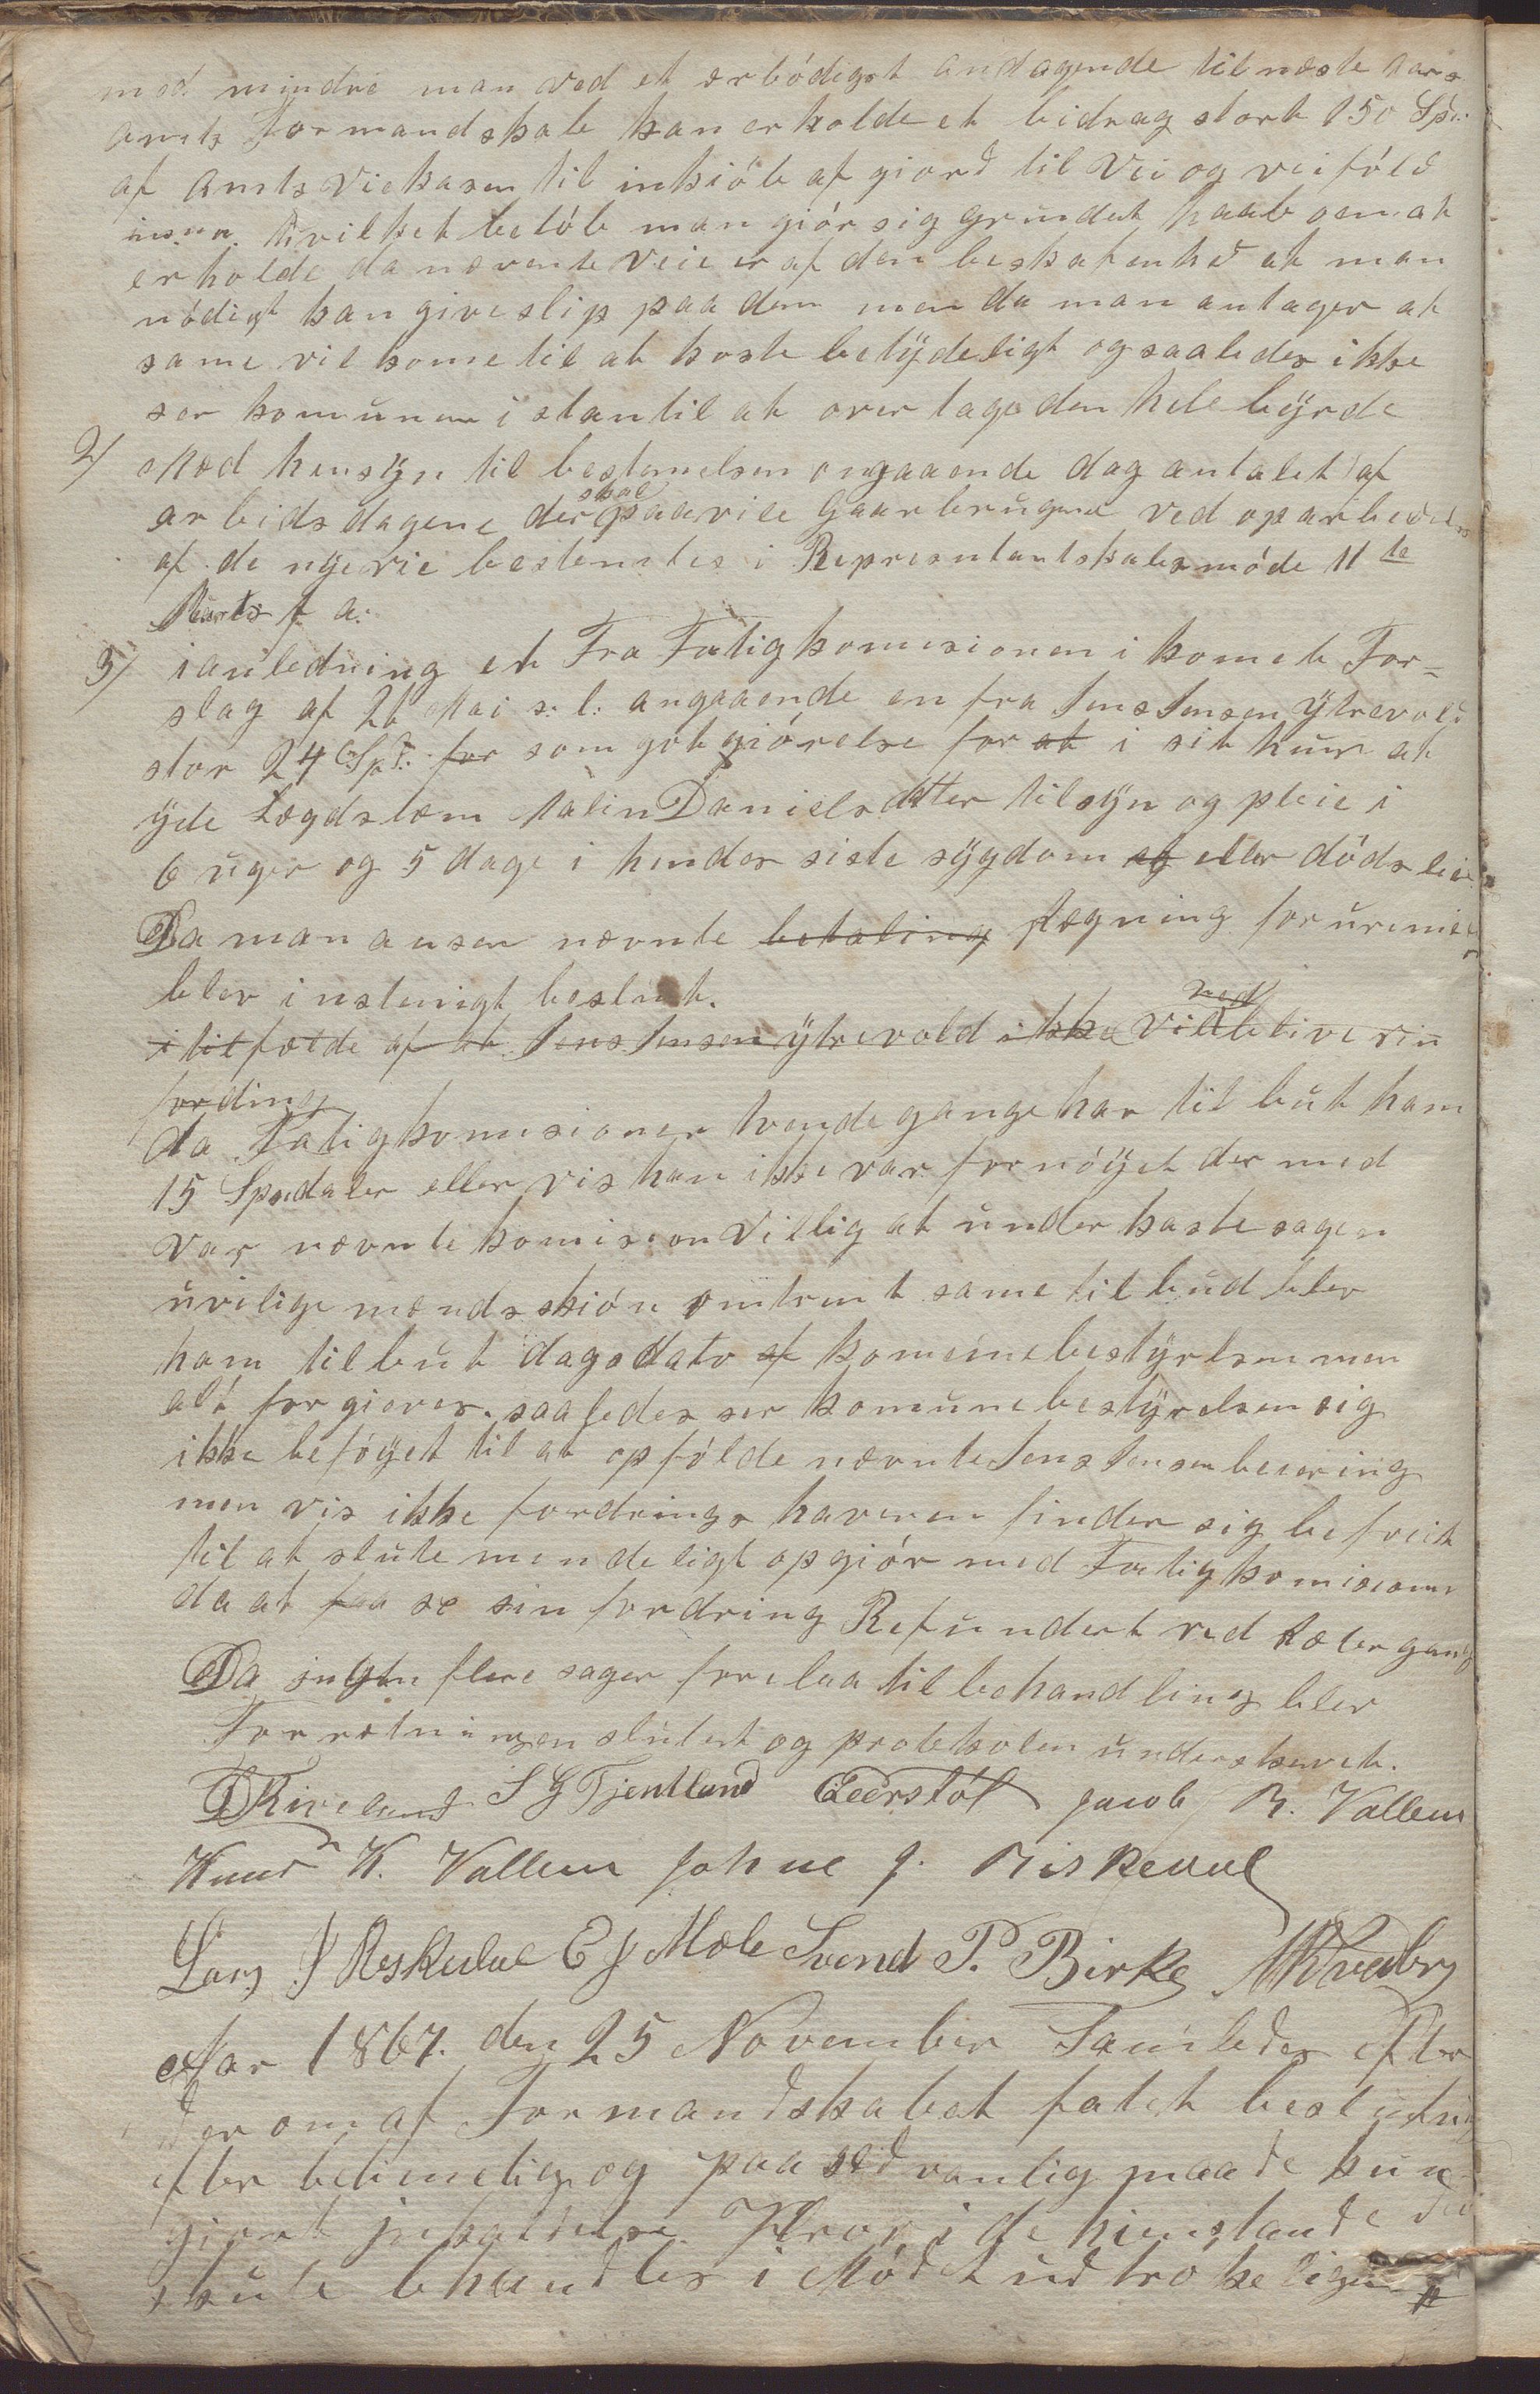 med mindre man ved et ærbödigst andagende til næste aars
amts Formandskab kan erholde et bidrag stort 150 Spd.
af amts Viekasen til inkiöb af giord til Vei og veiföld
hvilket belöb man giör sig grundet haab om at
erholde da nævnte Veie er af den beskafenhed at man
nödigt kan give slip paa dem men da man antager at
same vil kome til at koste betÿdeligt og saaledes ikke
ser komunen i stan til at over tage den hele bÿrde
2/ Med hensÿn til bestemelsen angaaende dag antalet af
arbeids dagene der skal paavile Gaarbrugene ved oparbeidels
af de nÿe vie bestemtes i Representantskabsmöde 11te
Marts f. a.
3/ i anledning et Fra Fatigkomisionen i komet For=
slag af 26 Mai s. l. angaaende en fra Jens Jensen Ÿtrevold
stor 24 Spd. for som got giörelse for at i sit huus at
ÿde Lægdslem Malin Danielsdatter tilsÿn og pleie i
6 uger og 5 dage i hendes siste sÿgdom og eller döds leie
Da man anser nævnte betaling regning for urimelig
blev instemigt beslutt.
i tilfælde af at Jens Jensen ÿtrevold ikke vil ved blive sin
fording
da Fatigkomisionen tvende gange har til but ham
15 Spesdaler eller vis han ikke var fornöÿet der med
var nævnte komision villig at under kaste sagen
uvilige mænds skiön omtrent same til bud blev
ham til but dags dato af komunebestÿrelsen men
alt forgieves. saaledes ser komunebestÿrelsen sig
ikke beföÿet til at opfölde nævnte Jens Jensen begiering
men vis ikke fordrings haveren finder sig beföiet
til at slute mindeligt opgiör med Fatigkomisionen
da at faa se sin fordring Refundert ved lovergang
Da ingen flere sager forelaa til behandling blev
Forretningen slutet og protokolen underskrevet.
S G Tjentland Jacob R. Vallem
Knud K. Vallem Johne J. Riskedal
Lars J Reskedal E J Mæle Svend P. Birke
Aar 1867. den 25 November Samledes efter
der om af Formandskabet fatet beslutning
efter betimelig og paa sedvanlig maade kun-
giort inkaldelse. Hvor i de hienstande der
skule behandles i Mödet udtrökeligen